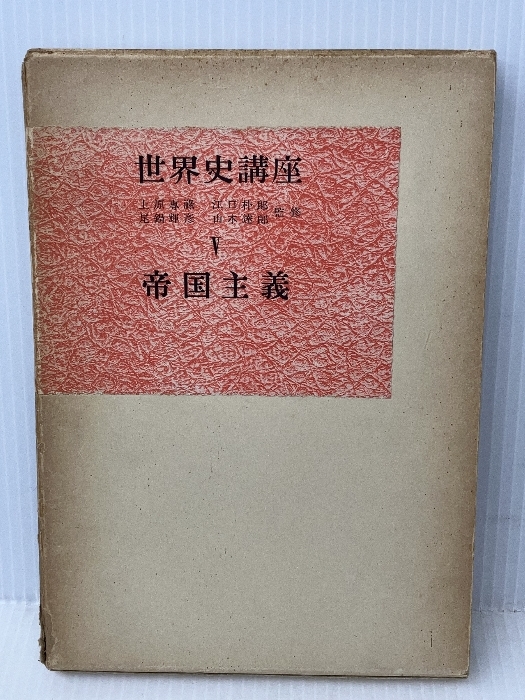 世界史講座
上原専祿 江口朴郎
尾鍋輝彦 山本達郎 監修
V
帝国主義